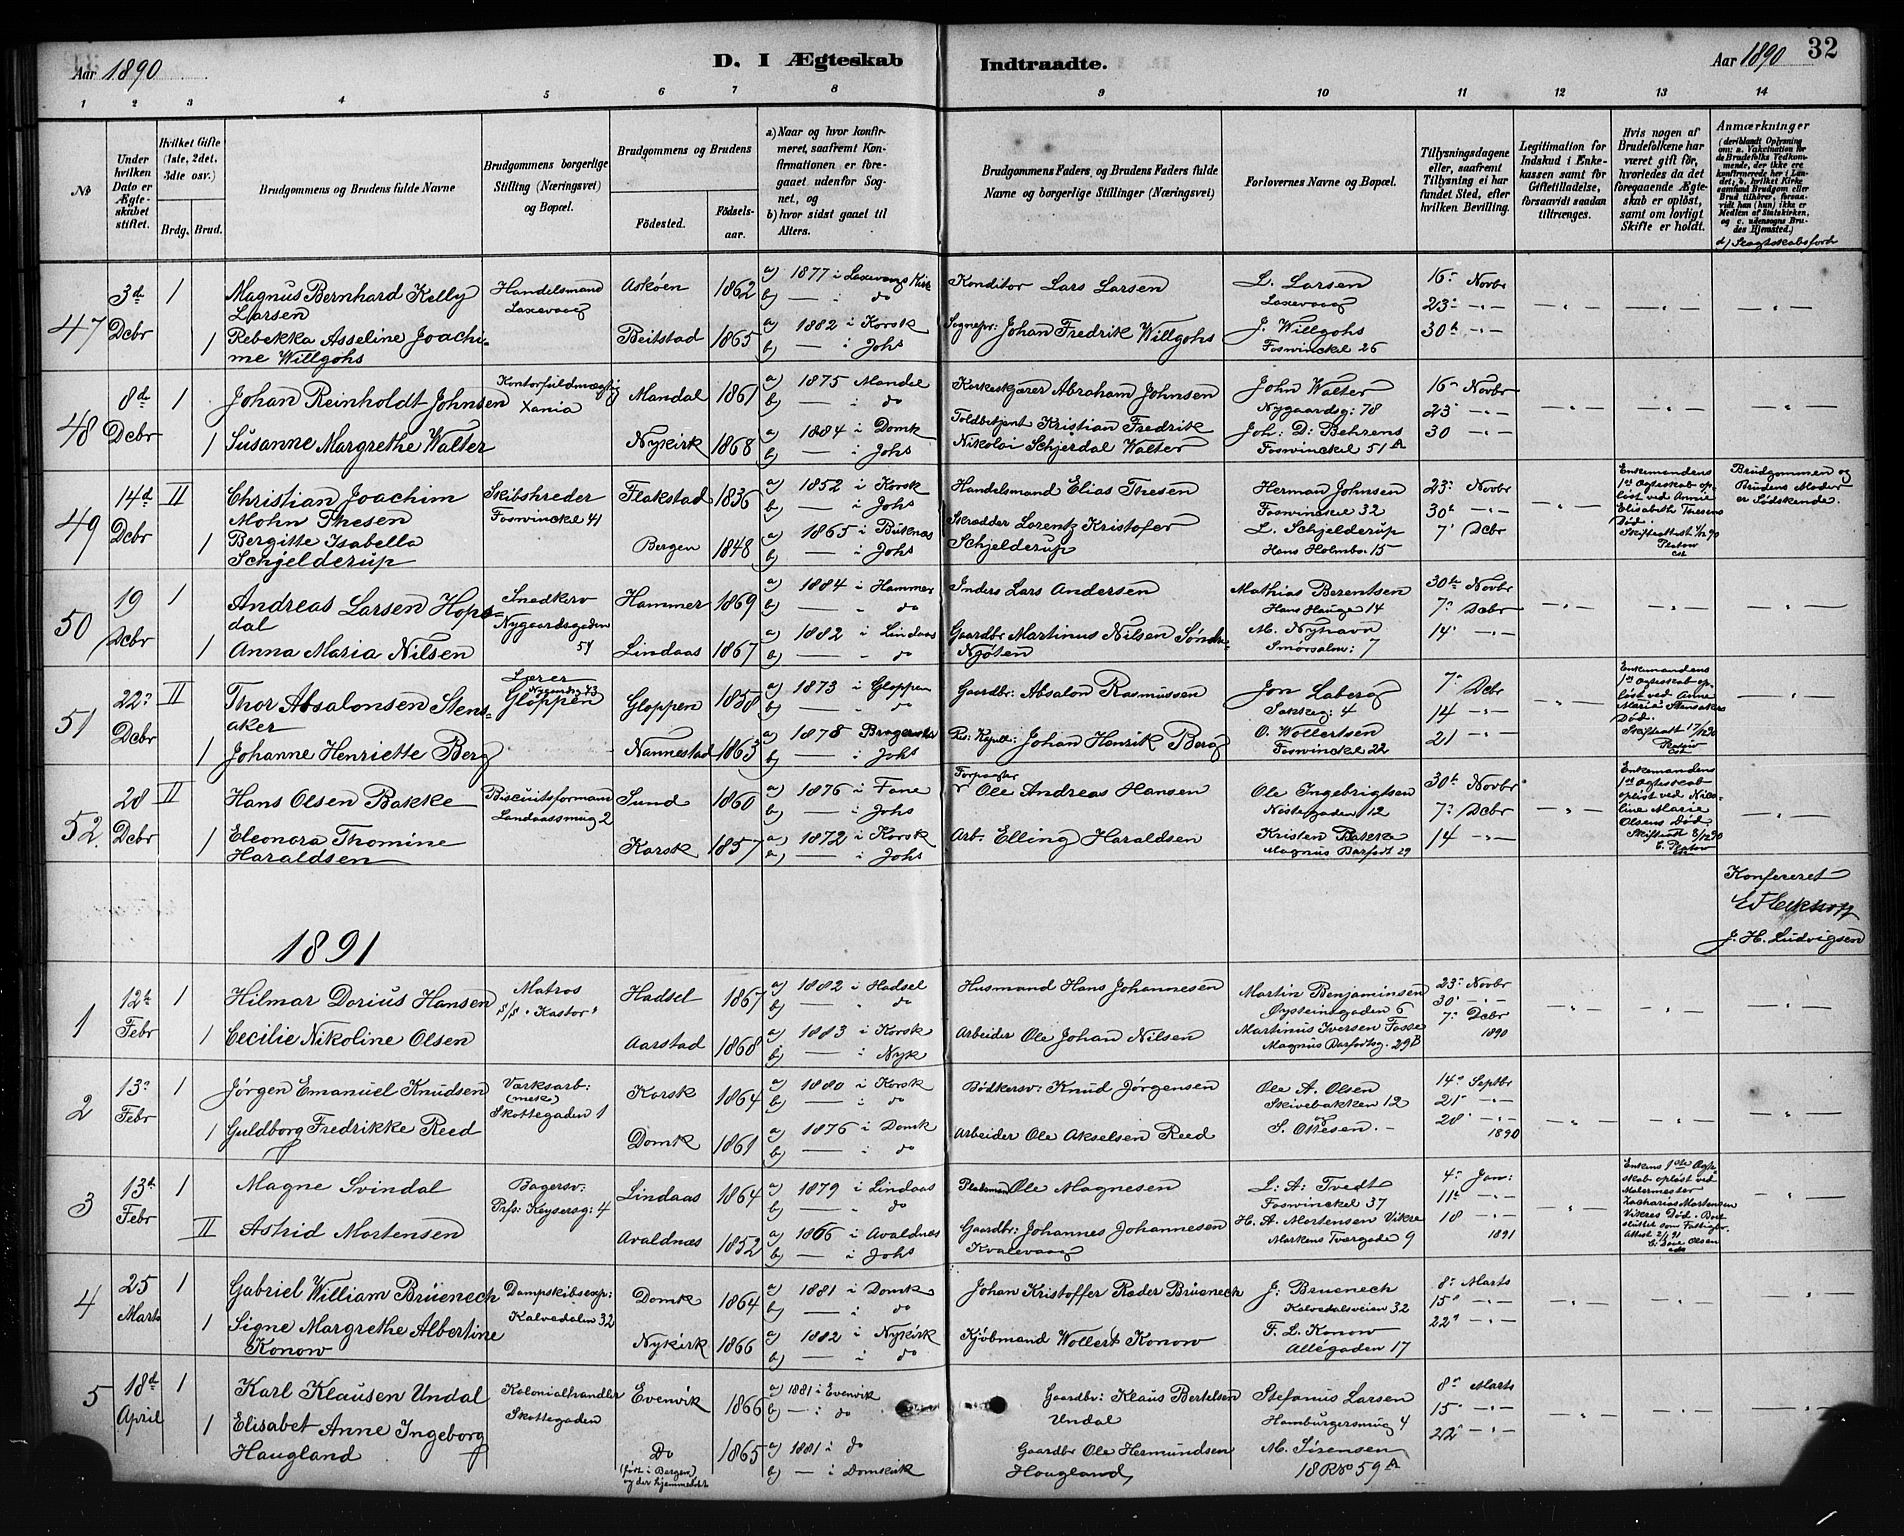 Aar 1890
D. I Ægteskab Indtraadte.
Aar 1890
32
1 2 3 4 5 6 7 8 9 10 11 12 13 14
No
Under hvilken Dato er Ægteskabet stiftet.
Hvilket Gifte (1ste, 2det, 3die osv.)
Brdg. Brud.
Brudgommens og Brudens fulde Navne
Brudgommens borgerlige Stilling (Næringsvei) og Bopæl.
Brudgommens og Brudens
Födested.
Födselsaar.
a) Naar og hvor konfirmeret, saafremt Konfirmationen er foregaaet udenfor Sognet, og
b) hvor sidst gaaet til Alters.
Brudgommens Faders, og Brudens Faders fulde Navne og borgerlige Stillinger (Næringsvei)
Forlovernes Navne og Bopæl.
Tillysningsdagene eller, saafremt Tillysning ei har fundet Sted, efter hvilken Bevilling.
Legitimation for Indskud i Enkekassen samt for Giftetilladelse, forsaavidt saadan tiltrænges.
Hvis nogen af Brudefolkene har været gift før, hvorledes da det foregaaende Ægteskab er oplöst, samt om lovligt Skifte er holdt.
Anmærkninger
47
3d Dcbr
1
Magnus Bernhard Kelly Larsen
Handelsmand Laxevaag
Askøen 1862
a) 1877 i Laxevaags Kirk
b) — " do
Konditor Lars Larsen
L. Larsen Laxevaag
16. Novbr
23. -"-
30t -"-
1
Rebekka Asseline Joachime Willgohs
Beitstad 1865
a) 1882 i Korsk
b) — i Johs
Sognepr: Johan Fredrik Willgohs
J. Willgohs Foswinckel 26
48
8d Dcbr
1
Johan Reinholdt Johnsen
Kontorfuldmægtig Xania
Mandal 1861
a) 1875 Mandal
b) — " do
Korkeskjærer Abraham Johnsen
John Walter Nygaardsg: 78
16 Novbr
23 -"-
30 -"-
1
Susanne Margrethe Walter
Nykirk 1868
a) 1884 i Domk
b) — i Johs
Toldbetjent Kristian Fredrik Nikolai Schjerdal Walter
Joh: D: Behrens Foswinckel 51 A
49
14d Dcbr
II
Christian Joachim Mohn Thesen
Skibshreder Foswinckel 41
Flakstad 1836
a) 1852 i Korsk
b) — i Johs
Handelsmand Elias Thesen
Herman Johnsen Foswinckel 32
23. Novbr
30t -"-
7. Dcbr
Enkemandens 1st Ægteskab opløst ved Annie Elisabeth Thesens Død. Skifteattest 1/12 90
Brudgommen og Brudens Moder er Sødskende.
1
Bergitte Isabella Schjelderup
Bergen 1848
a) 1865 i Buknæs
b) — i Johs
Skrædder Lorentz Kristofer Schjelderup
L. Schjelderup Hans Holmbo. 15
50
19 Dcbr
1
Andreas Larsen Hopsdal
Snedkersv Nygaardsgaden 51
Hammer 1869
a) 1884 i Hammer
b) — " do
Inders Lars Andersen
Mathias Berentsen Hans Hauge 14
30te Novbr
7. Dcbr
14. -"-
1
Anna Maria Nilsen
Lindaas 1867
a) 1882 i Lindaas
b) — " do
Gaardbr Martinus Nilsen
M. Nyhavn Smørsalm: 7
51
22. Dcbr
II
Thor Absalonsen Stensaker
Lærer Gloppen
Gloppen 1850
a) 1873 i Gloppen
b) — " do
Gaardbr: Absalon Rasmussen
Jon Laberg Sakkeg: 4
7. Dcbr
14 -"-
21 -"-
Enkemandens 1st Ægteskab opløst ved Anne Marie Stensakers Død. Skifteatt 17/12 90
1
Johanne Henriette Berg
Nannestad 1863
a) 1878 Bragernes
b) — " Johs
Res: Kapell: Johan Henrik Berg
O. Wollertsen Foswinckel 22
52
28 Dcbr
II
Hans Olsen Bakke
Biscuitsformand Landaassmug 2
Sund 1860
a) 1876 i Fane
b) — i Johs
Forpagter Ole Andreas Hansen
Ole Ingebrigtsen Nestegaden 12
30t Novbr
7. Dcbr
14 -"-
Enkemandens 1st Ægteskab opløst ved Nicoline Marie Olsens Død Skifteatt 8/12 90
1
Eleonora Thomine Haraldsen
Korsk 1857
a) 1872 i Korsk
a) — i Johs
Arb. Elling Haraldsen
Kristen Bakke Magnus Barfodt 29
Konfereret
J. H. Ludvigsen
1891
1
12te Febr
1
Hilmar Dorius Hansen
Matros S/S "Kastor"
Hadsel 1867
a) 1882 i Hadsel
b) — " do
Husmand Hans Johannesen
Martin Benjaminsen Øysteinsgaden 6
23. Novbr
30. -"-
7. Dcbr
1890
1
Cecilie Nikoline Olsen
Aarstad 1868
a) 1883 i Korsk
b) — i Nyk
Arbeider Ole Johan Nilsen
Martinus Iversen Fosse Magnus Barfodtsg. 29B
2
13. Febr
1
Jørgen Emanuel Knudsen
Værksarb: (mek) Skottegaden 1
Korsk 1864
a) 1880 i Korsk
b) — " do
Bødkersv: Knud Jørgensen
Ole A. Olsen Skivebakken 12
14. Septbr
21. -"-
28. -"-
1890
1
Guldborg Fredrikke Reed
Domk 1861
a) 1876 i Domk
b) — " do
Arbeider Ole Akselsen Reed
og S. Ottesen. -
3
13d Febr
1
Magne Svindal
Bagersv: Prfs: Keysersg: 4
Lindaas 1864
a) 1879 i Lindaas
b) — " do
Ole Magnesen
L: A: Tvedt Foswinckel 37
4. Jan:
11te -"-
18 -"-
1891
Enkens 1ste Ægteskab opløst ved Malermester Zacharias Mortensen Vikres Død. Bort sluttet som Fattigbo. Attest 2/1 91
II
Astrid Mortensen
Avaldnæs 1852
a) 1866 i Avaldnæs
b) — i Johs
Gaardbr: Johannes Johannesen Kvalevaag
H. A. Mortensen Vikre Markens Tværgade 9
4
25 Marts
1
Gabriel William Brüenech
Dampskibsexp: Kalvedalen 32
Domk 1864
a) 1881 i Domk
b) — " do
Johan Kristoffer Røder Brüenech
J: Bruenech Kalvedalsveien 32
8. Marts
15. -"-
22. -"-
1
Signe Margrethe Albertine Konow
Nykirk 1866
a) 1882 i Nykirk
b) — i do
Kjøbmand Wollert Konow
F. L. Konow Allégaden 17
5
18d April
1
Karl Klausen Undal
Kolonialhandler Skottegaden
Evenvik 1866
a) 1881 i Evenvik
b) — " do
Gaardbr: Klaus Bertelsen Undal
Stefanus Larsen Hamburgersmug 4
8. Marts
15. -"-
22. -"-
1
Elisabet Anne Ingeborg Haugland
Do (født i Bergen) og der hjemmedøbt
1865
a) 1881 i do
b) — i Domkirk
Gaardbr Ole Hermundsen Hougland
M. Sørensen 18 R No 59 A